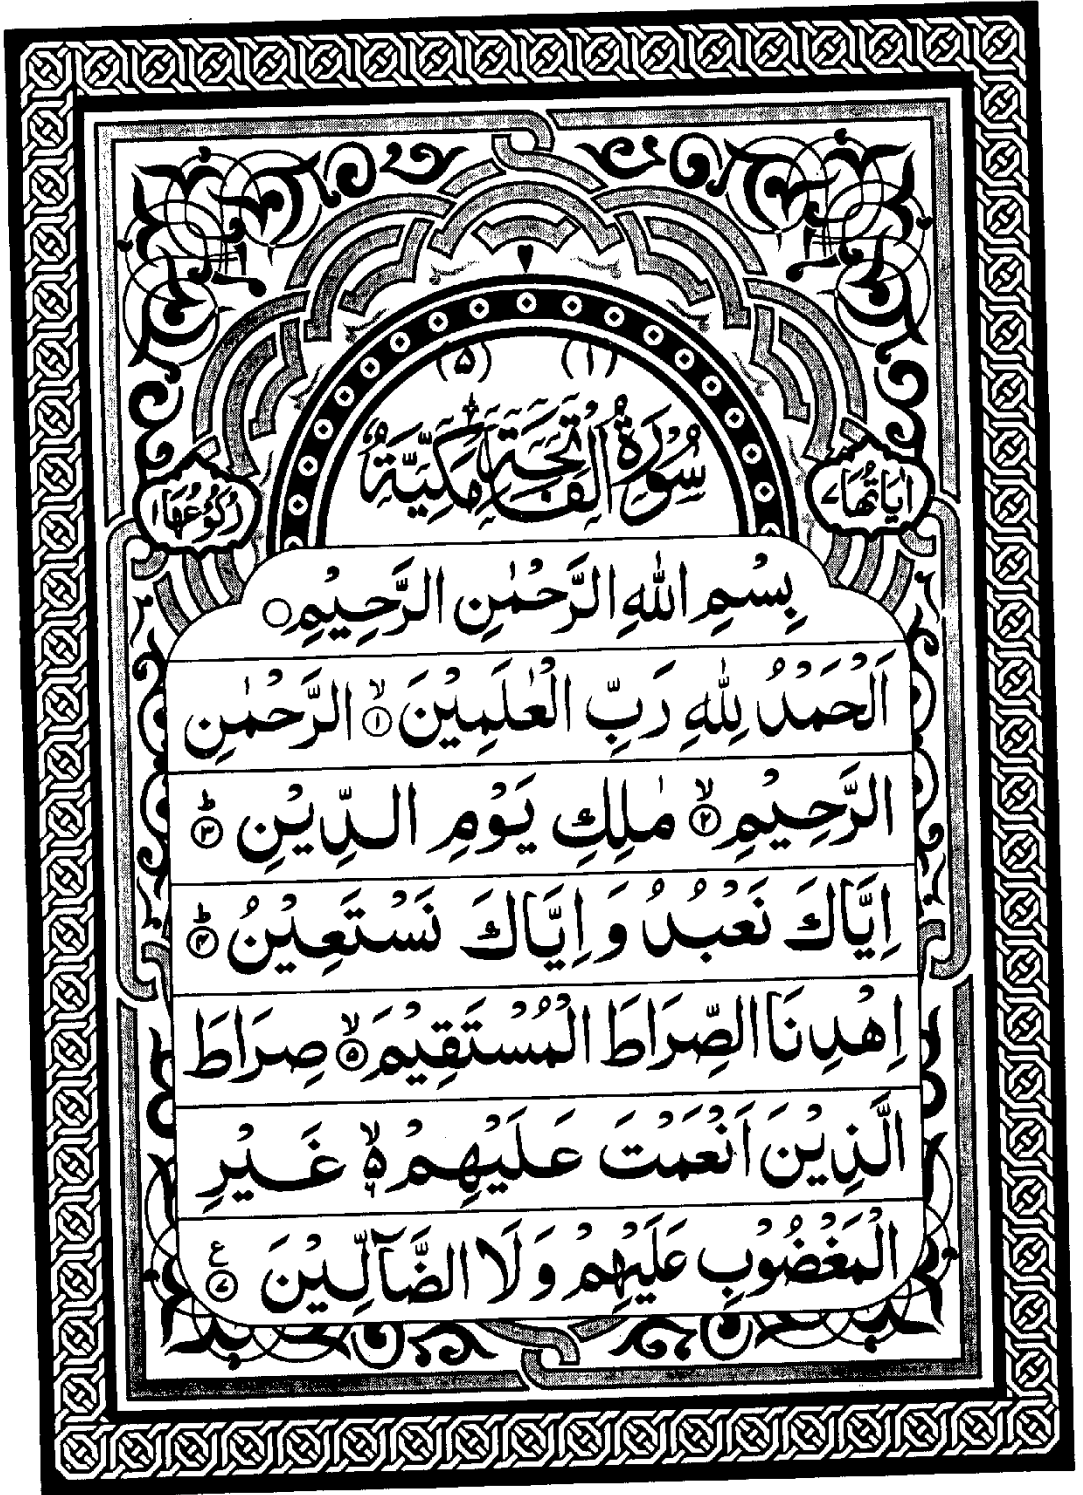 ٢
(١) (۵)
سُوْرَةُ الْفَاتِحَةِ مَكِّيَّةٌ
اٰيَاتُهَا ٧
رُكُوْعُهَا ١
بِسْمِ اللهِ الرَّحْمٰنِ الرَّحِيْمِ ○
اَلْحَمْدُ لِلّٰهِ رَبِّ الْعٰلَمِيْنَ ۙ﴿۱﴾ الرَّحْمٰنِ
الرَّحِيْمِ ۙ﴿۲﴾ مٰلِكِ يَوْمِ الدِّيْنِ ؕ﴿۳﴾
اِيَّاكَ نَعْبُدُ وَ اِيَّاكَ نَسْتَعِيْنُ ؕ﴿۴﴾
اِهْدِنَا الصِّرَاطَ الْمُسْتَقِيْمَ ۙ﴿۵﴾ صِرَاطَ
الَّذِيْنَ اَنْعَمْتَ عَلَيْهِمْ ۙ۬ۙ غَيْرِ
الْمَغْضُوْبِ عَلَيْهِمْ وَ لَا الضَّآلِّيْنَ ﴿۷﴾ ع